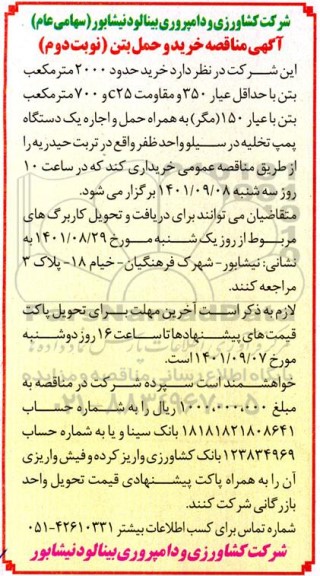 شرکت کشاورزی و دامپروری بینالود نیشابور (سهامی عام)
آگهی مناقصه خرید و حمل بتن (نوبت دوم)
این شرکت در نظر دارد خرید حدود ۲۰۰۰ مترمکعب
بتن با حداقل عیار ۳۵۰ و مقاومت c۲۵ و ۷۰۰ مترمکعب
بتن با عیار ۱۵۰ (مگر) به همراه حمل و اجاره یک دستگاه
پمپ تخلیه در سیلو واحد ظفر واقع در تربت حیدریه را
از طریق مناقصه عمومی خریداری کند که در ساعت ۱۰
روز سه شنبه ۱۴۰۱/۰۹/۰۸ برگزار می شود.
متقاضیان می توانند برای دریافت و تحویل کاربرگ های
مربوط از روز یک شنبه مورخ ۱۴۰۱/۰۸/۲۹ به
نشانی: نیشابور - شهرک فرهنگیان - خیام ۱۸ - پلاک ۳
مراجعه کنند.
لازم به ذکر است آخرین مهلت برای تحویل پاکت
قیمت های پیشنهادها تا ساعت ۱۶ روز دوشنبه
مورخ ۱۴۰۱/۰۹/۰۷ است.
خواهشمند است سپرده شرکت در مناقصه به
مبلغ ۱,۰۰۰,۰۰۰,۰۰۰ ریال را به شماره حساب
۱۸۱۸۱۸۲۱۸۰۸۶۴۱ بانک سینا و یا به شماره حساب
۱۲۳۸۳۴۹۶۹ بانک کشاورزی واریز کرده و فیش واریزی
آن را به همراه پاکت پیشنهادی قیمت تحویل واحد
بازرگانی شرکت کنند.
شماره تماس برای کسب اطلاعات بیشتر ۴۲۶۱۰۳۳۱-۰۵۱
شرکت کشاورزی و دامپروری بینالود نیشابور